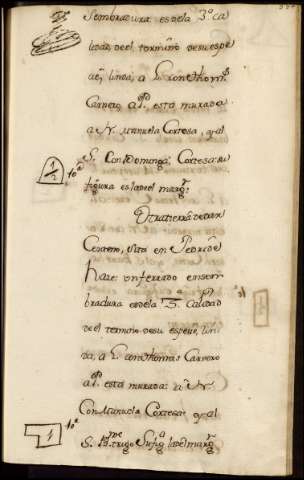 Sembradura es dela 3.ª ca
lidad, del termino desu espe
cie, linda, a L. con Thomas
Carrero, a P. está murada
a N. Manuela Cortesa, y al
S. Con Dominga Cortesa su
figura es la del marg.n
10.e
Otra tierra de
Centeno, sita en
haze un ferrado en sem
bradura es dela 3.ª Calidad
del termino desu especie, lin
da, a L. con Thomas Carrero
a P. está murada a N.
Con Manuela Cortesa, y al
S. Su fig.ª la del marg.n
1 10.e